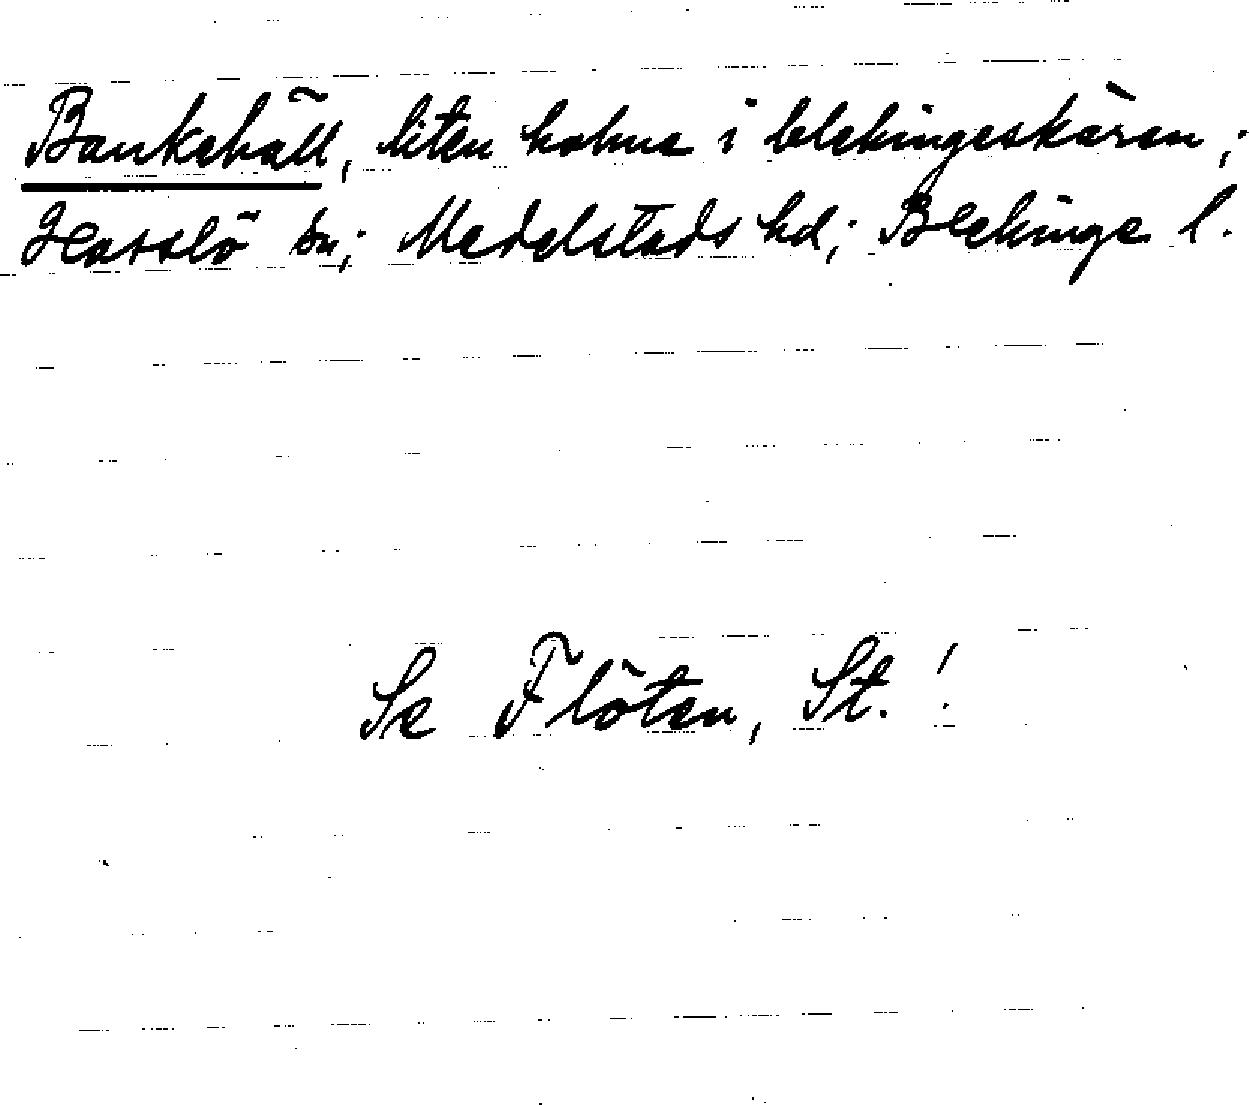 Bankehäll, liten holme i blekingeskären;
Hasslö sn; Medelstads hd; Blekinge l.
Se Flöten, St.!